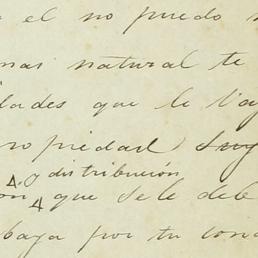 el no puedo
mas natural te
dades que le vay
propiedad suy
distribución
on, que se le deb
baya por tu cond